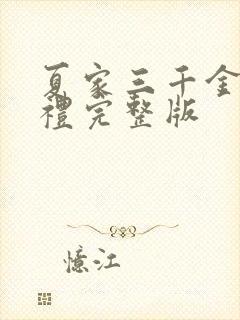 夏家三千金
禮完整版
憶江